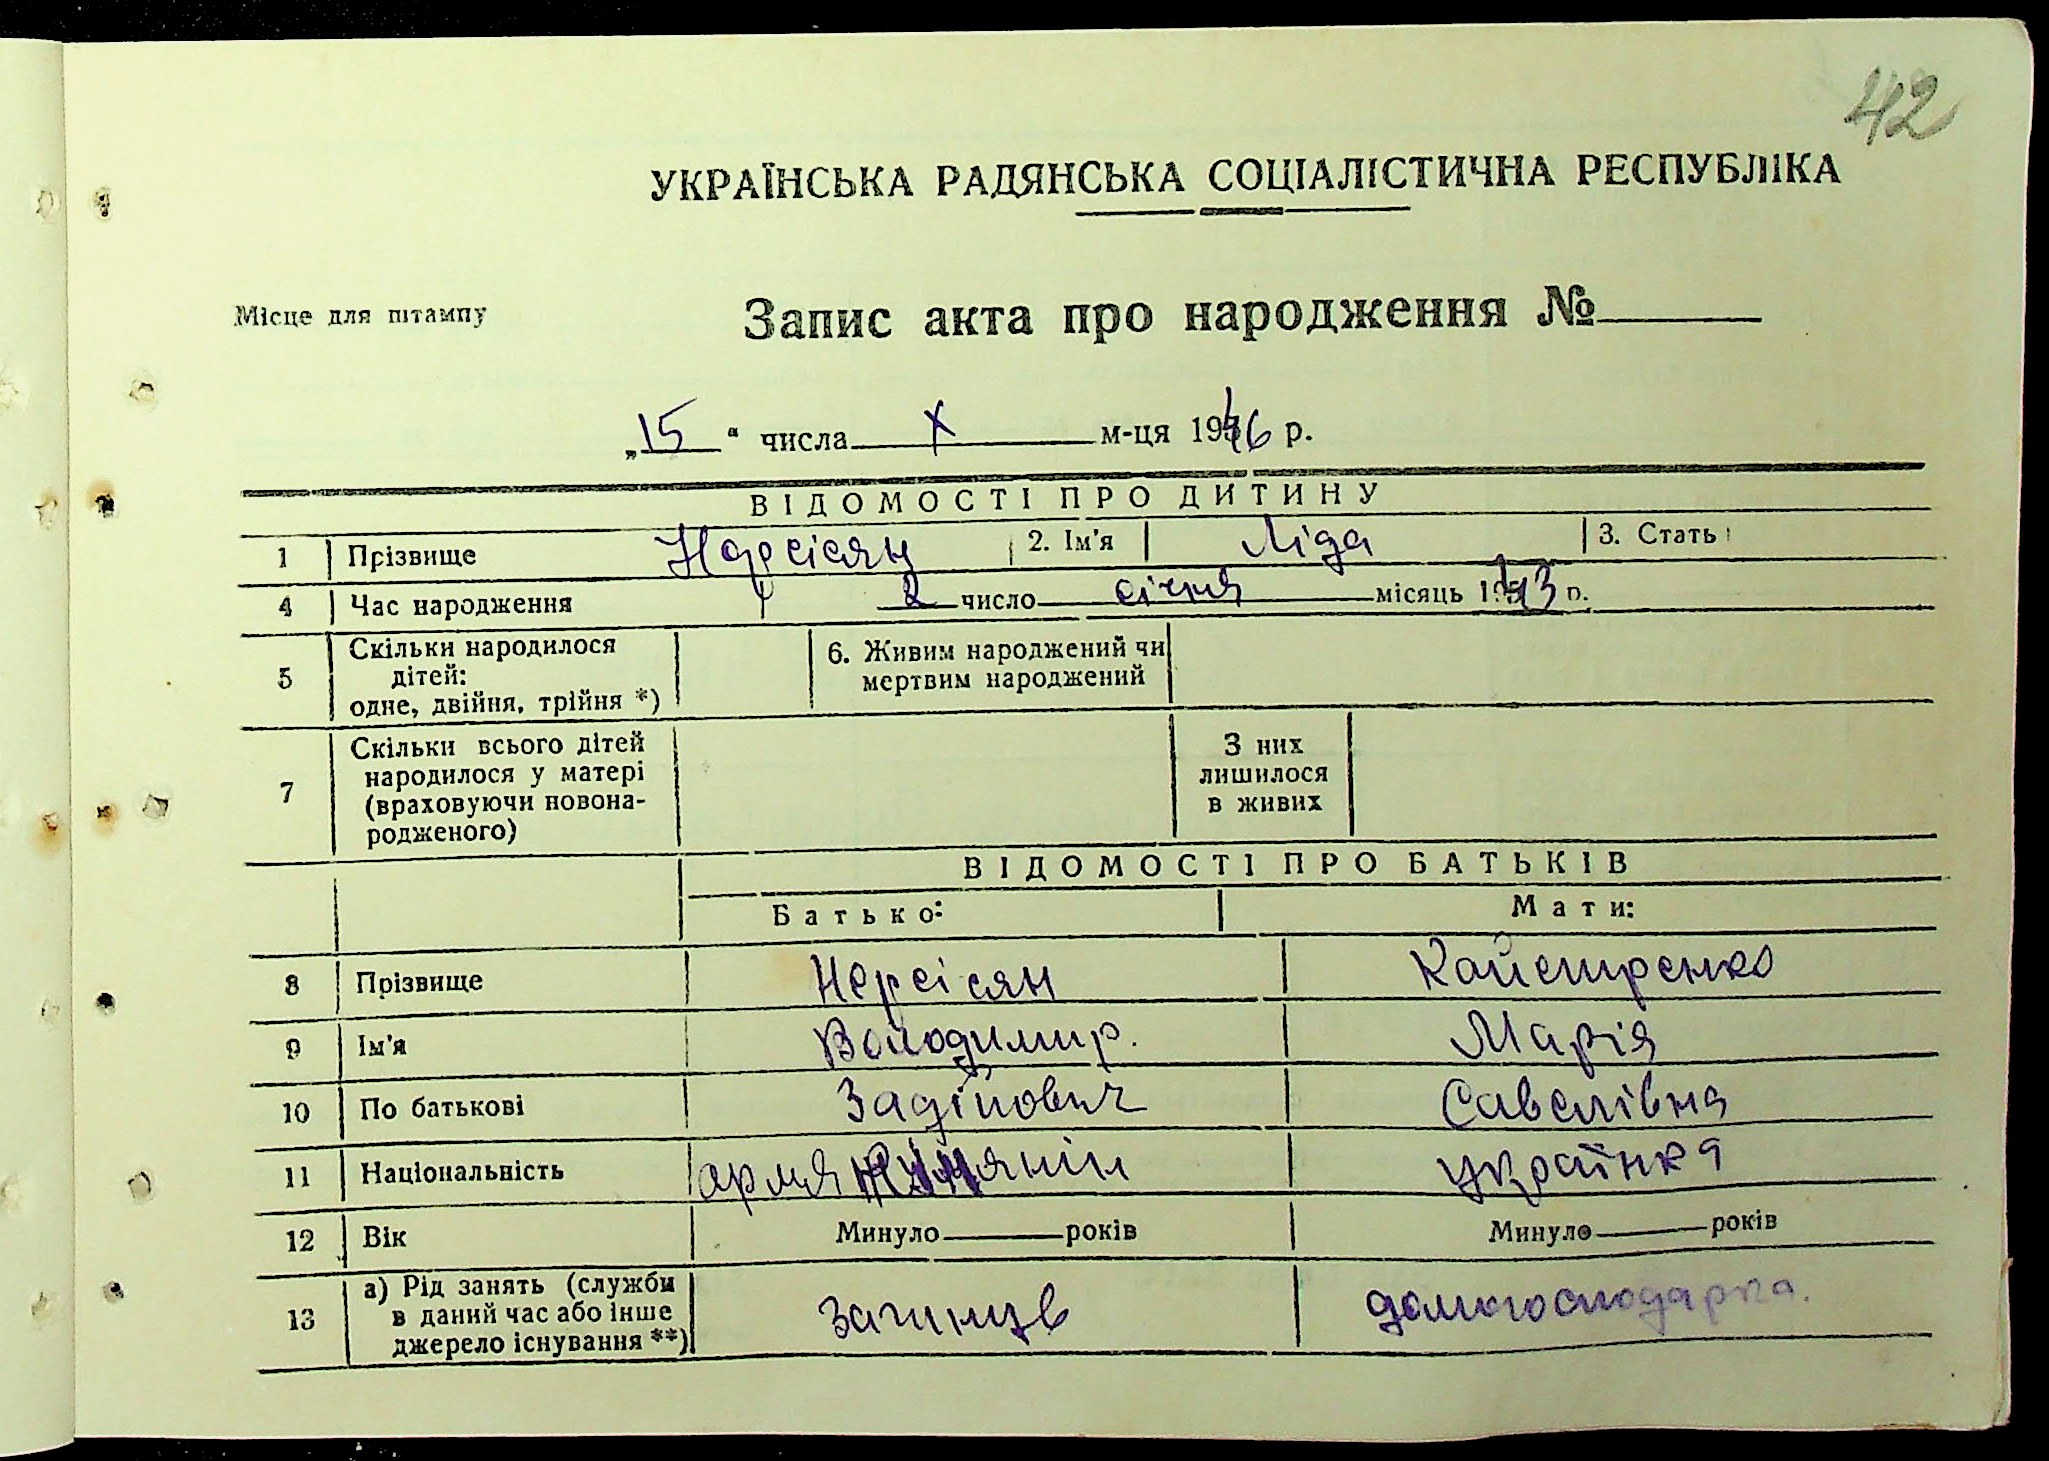 42
УКРАЇНСЬКА РАДЯНСЬКА СОЦІАЛІСТИЧНА РЕСПУБЛІКА
Місце для штампу
Запис акта про народження №
„15“ числа X м-ця 1946 р.
ВІДОМОСТІ ПРО ДИТИНУ
1 Прізвище Нерсісян 2. Ім'я Ліда 3. Стать
4 Час народження 2 число січня місяць 1943 р.
5 Скільки народилося дітей: одне, двійня, трійня *) 6. Живим народжений чи мертвим народжений
7 Скільки всього дітей народилося у матері (враховуючи новона-родженого) З них лишилося в живих
ВІДОМОСТІ ПРО БАТЬКІВ
Батько: Мати:
8 Прізвище Нерсісян Кайстренко
9 Ім'я Володимир. Марія
10 По батькові Савелівна
11 Національність українка
12 Вік Минуло років Минуло років
13 а) Рід занять (служби в даний час або інше джерело існування **) домогосподарка.